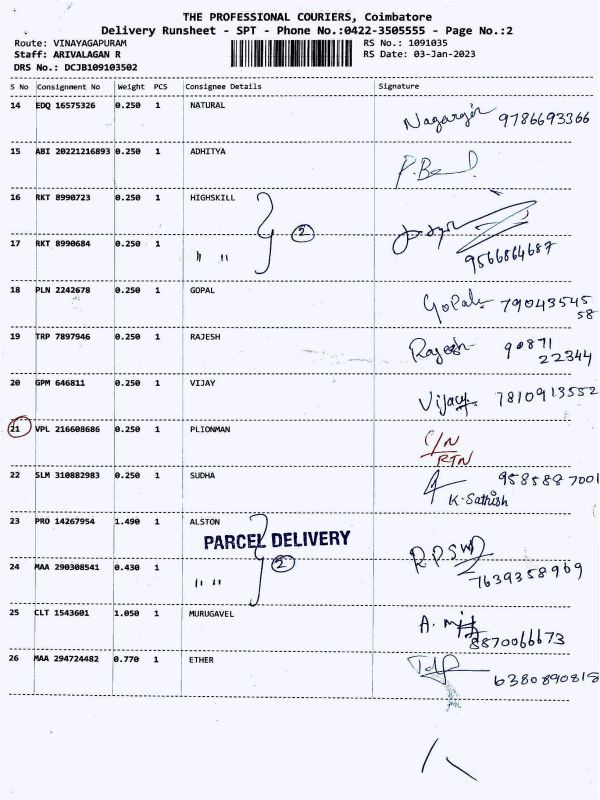 THE PROFESSIONAL COURIERS, Coimbatore
Delivery Runsheet - SPT - Phone No.:0422-3505555 - Page No.:2
Route: VINAYAGAPURAM RS No.: 1091035
Staff: ARIVALAGAN R RS Date: 03-Jan-2023
DRS No.: DCJB109103502
S No Consignment No Weight PCS Consignee Details Signature
14 EDQ 16575326 0.250 1 NATURAL
9786693366
15 ABI 20221216893 0.250 1 ADHITYA
16 RKT 8990723 0.250 1 HIGHSKILL
2
17 RKT 8990684 0.250 1 " "
9566864687
18 PLN 2242678 0.250 1 GOPAL
GoPal 79043545
58
19 TRP 7897946 0.250 1 RAJESH
Rajesh 90871
22344
20 GPM 646811 0.250 1 VIJAY
Vijay 7810913552
21 VPL 216608686 0.250 1 PLIONMAN
C/N
RTN
22 SLM 310882983 0.250 1 SUDHA
9585887001
K. Sathish
23 PRO 14267954 1.490 1 ALSTON
PARCEL DELIVERY
24 MAA 290308541 0.430 1 " " 2
7639358969
25 CLT 1543601 1.050 1 MURUGAVEL
8870066673
26 MAA 294724482 0.770 1 ETHER
6380890815